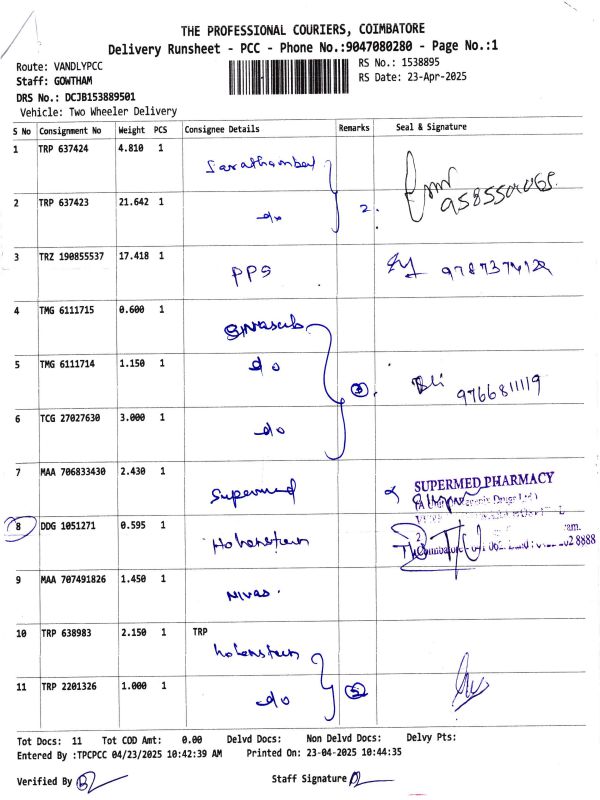 THE PROFESSIONAL COURIERS, COIMBATORE
Delivery Runsheet - PCC - Phone No.:9047080280 - Page No.:1
Route: VANDLYPCC
RS No.: 1538895
Staff: GOWTHAM
RS Date: 23-Apr-2025
DRS No.: DCJB153889501
Vehicle: Two Wheeler Delivery
S No Consignment No Weight PCS Consignee Details Remarks Seal & Signature
1 TRP 637424 4.810 1 Sarathambal
2 TRP 637423 21.642 1 do 2.
3 TRZ 190855537 17.418 1 PPS
4 TMG 6111715 0.600 1
5 TMG 6111714 1.150 1 do 3 9766811119
6 TCG 27027630 3.000 1 do
7 MAA 706833430 2.430 1 Supermed SUPERMED PHARMACY
8 DDG 1051271 0.595 1 Hohenstein
9 MAA 707491826 1.450 1 Nivas.
10 TRP 638983 2.150 1 TRP
hohenstein
11 TRP 2201326 1.000 1 do
Tot Docs: 11 Tot COD Amt: 0.00 Delvd Docs: Non Delvd Docs: Delvy Pts:
Entered By :TPCPCC 04/23/2025 10:42:39 AM Printed On: 23-04-2025 10:44:35
Verified By
Staff Signature